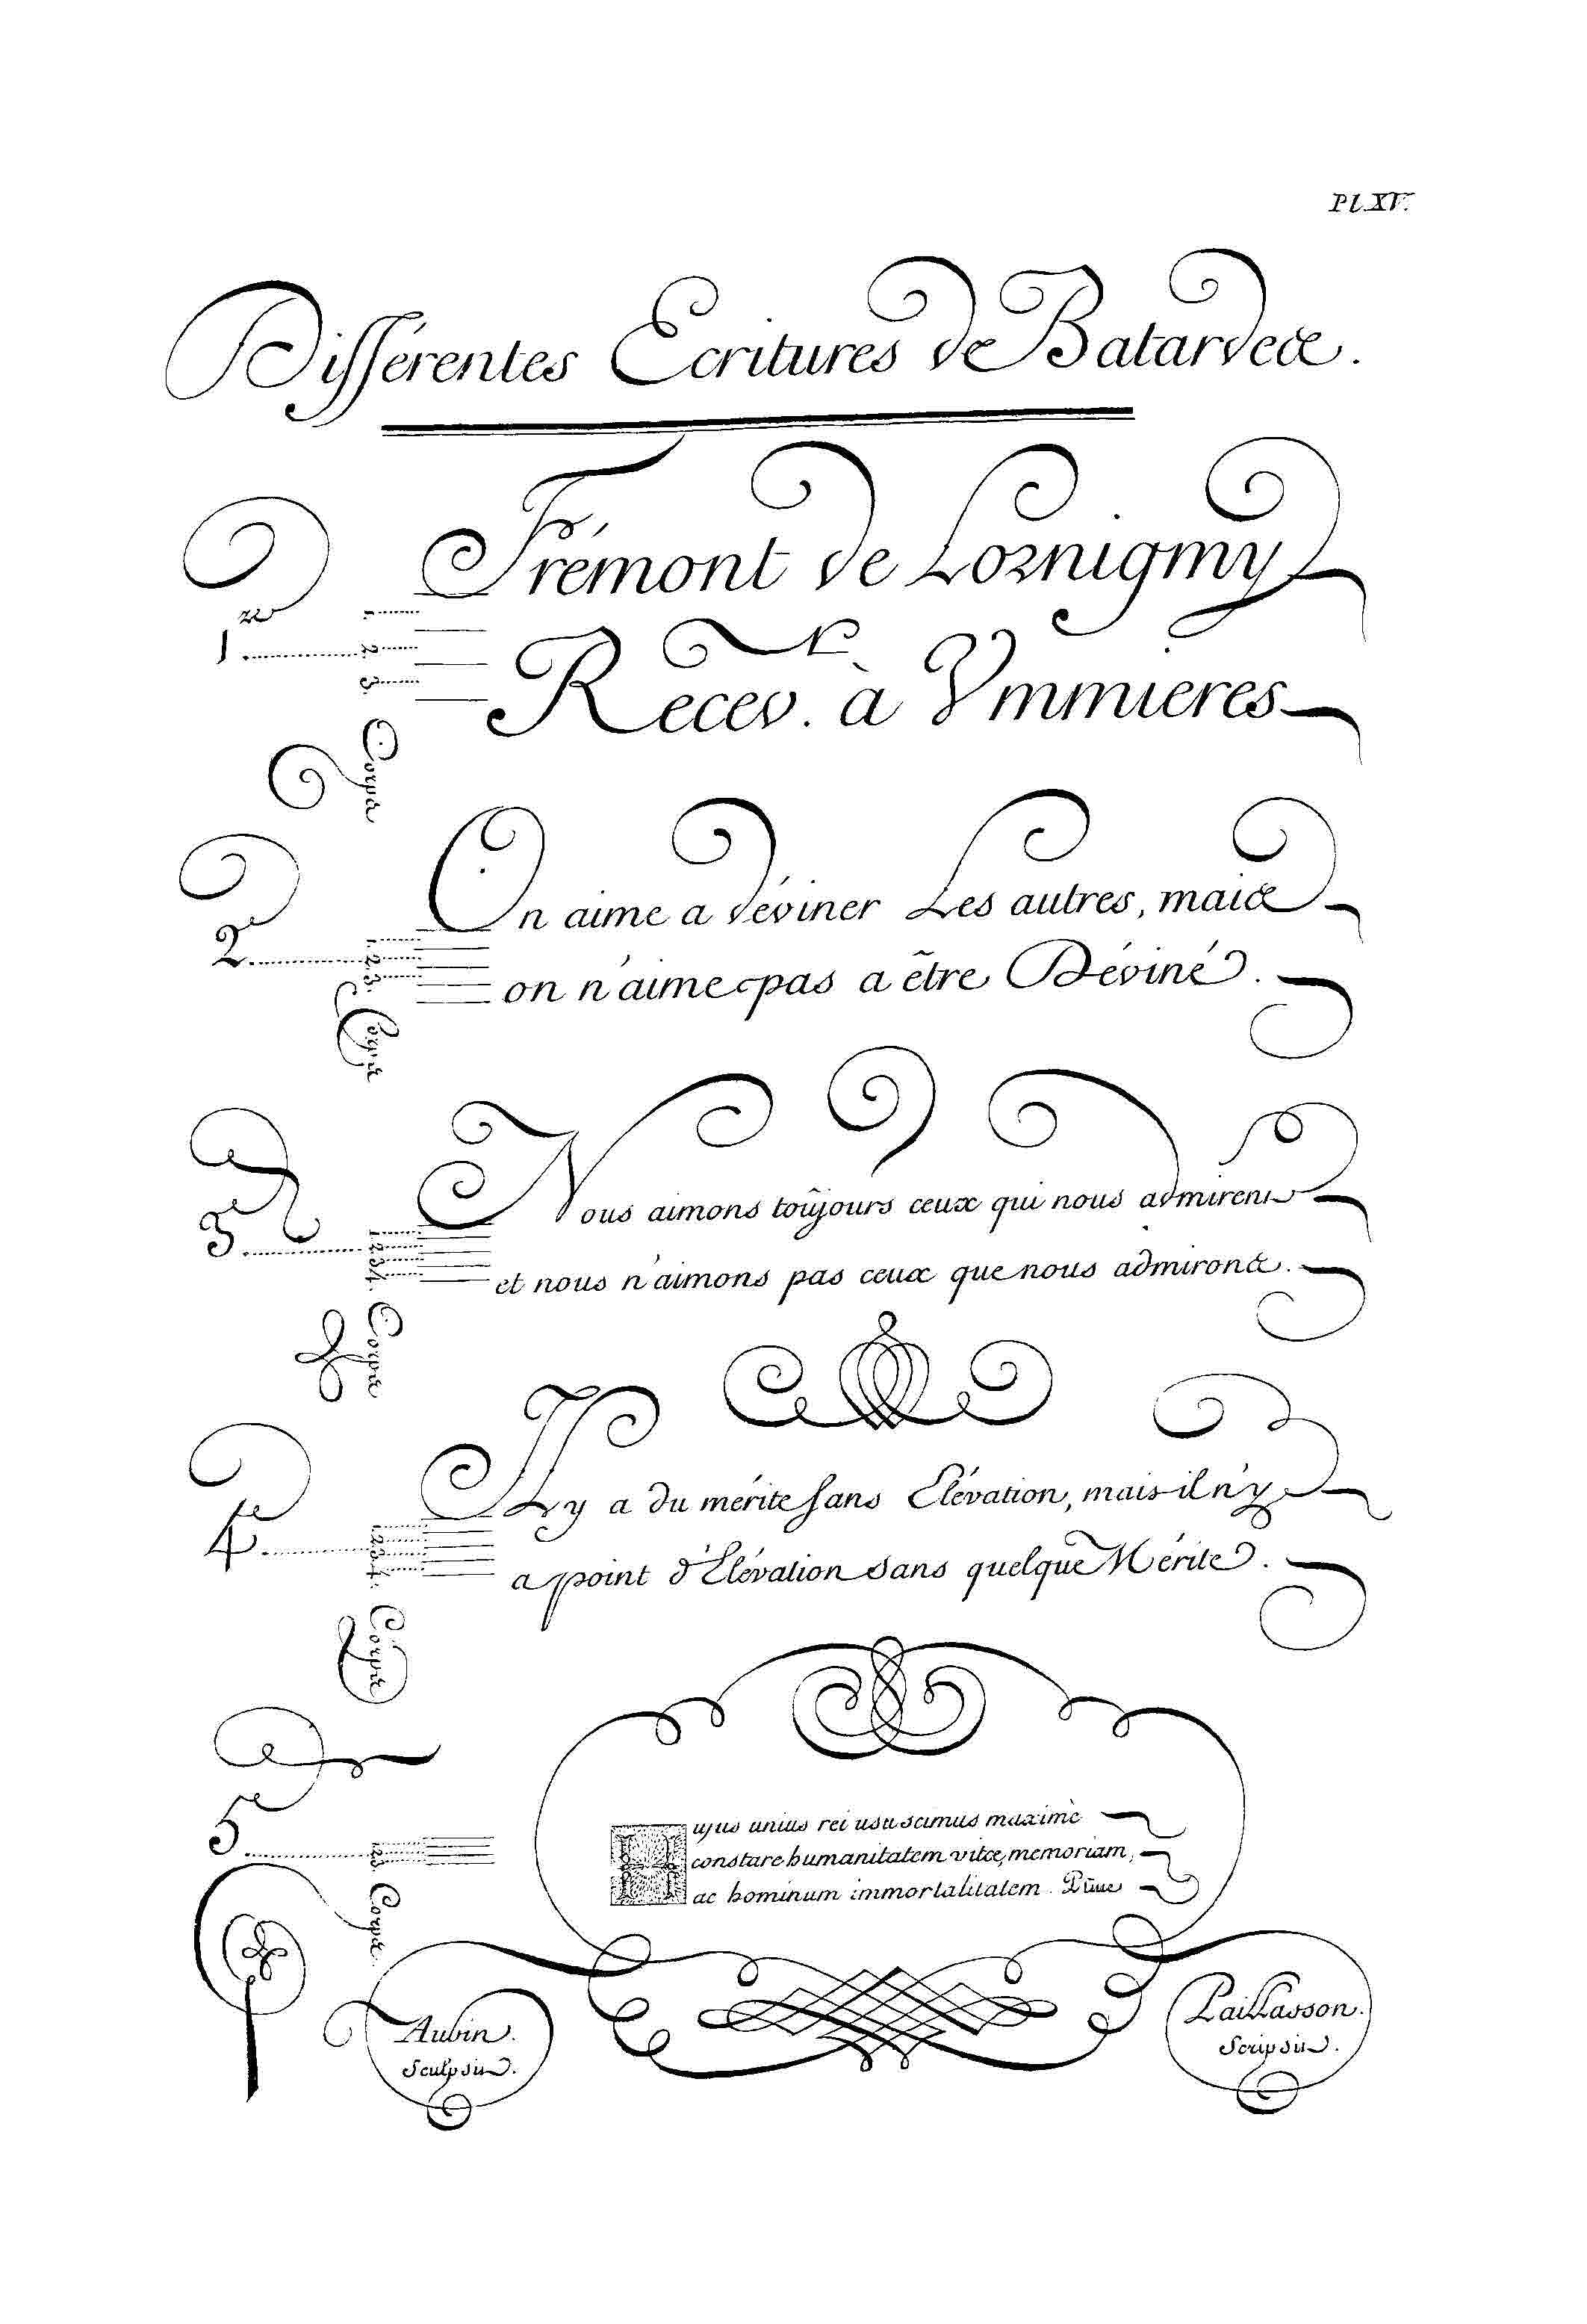 Pl. XV.
Différentes Ecritures de Batardes.
1.re
1
2
3
Corps
Frémont de Loznigmy
Recev.r à Ymmieres
2.e
1
2
3
Corps
On aime a déviner Les autres, mais
on n'aime pas a être Déviné.
3.e
1
2
3
4
Corps
Nous aimons toûjours ceux qui nous admirent
et nous n'aimons pas ceux que nous admirons.
4.e
1
2
3
4
Corps
Il y a du mérite sans Elévation, mais il n'y
a point d'Elévation sans quelque Mérite.
5.e
1
2
3
Corps
Hujus unius rei usu scimus maximè
constare humanitatem vitæ, memoriam,
ac hominum immortalitatem. Pline
Aubin.
Sculpsit.
Paillasson.
Scripsit.